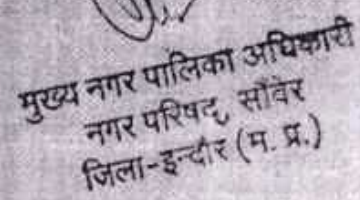 मुख्य नगर पालिका अधिकारी
नगर परिषद्, सॉवेर
जिला-इन्दौर (म. प्र.)